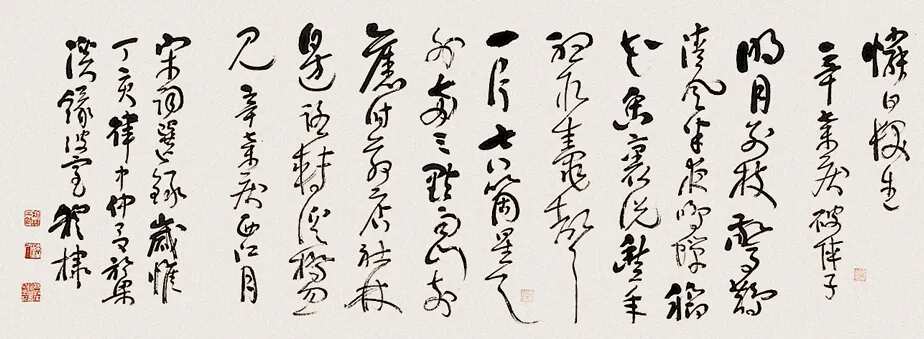 憐白髮生
辛棄疾破陣子
明月別枝驚鵲
清風半夜鳴蟬稻
花香裏說豐年
聽取蛙聲
一片七八箇星天
外兩三點雨山前
舊時茅店社林
邊路轉溪橋忽
見辛棄疾西江月
宋詞選錄歲惟
丁亥律中仲呂